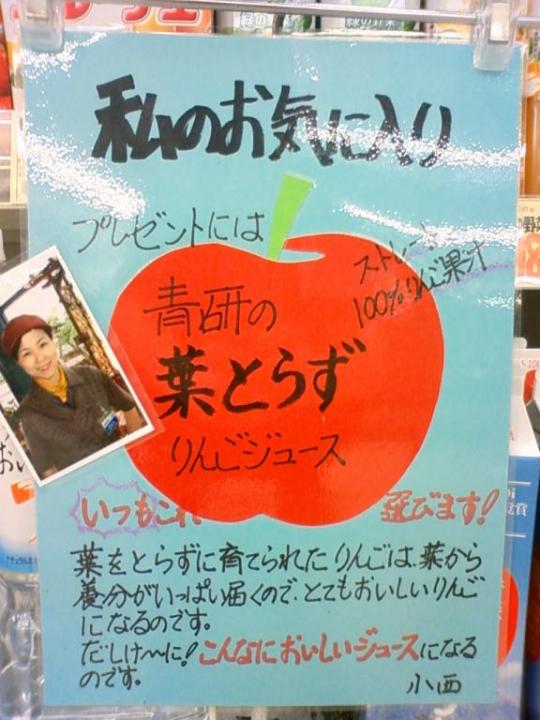 私のお気に入り
プレゼントには
ストレート
100%りんご果汁
青研の
葉とらず
りんごジュース
いつもこれ
選びます!
葉をとらずに育てられたりんごは、葉から
養分がいっぱい届くので、とてもおいしいりんご
になるのです。
だしけ〜に!こんなにおいしいジュースになる
のです。
小西